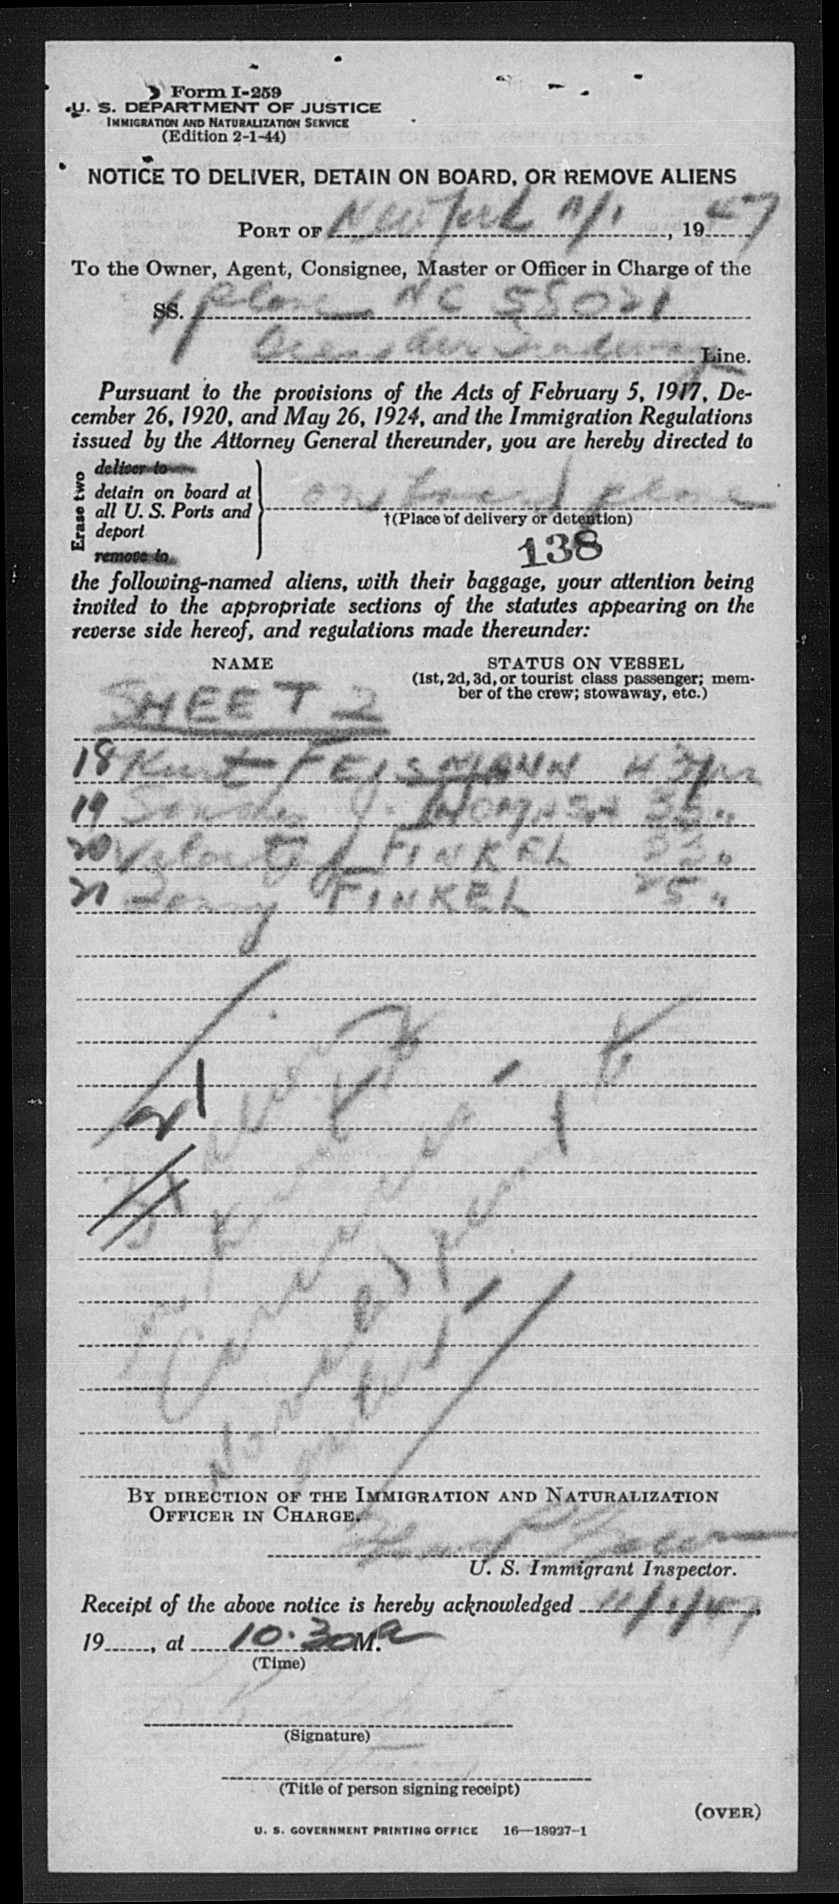 Form I-259
U. S. DEPARTMENT OF JUSTICE
IMMIGRATION AND NATURALIZATION SERVICE
(Edition 2-1-44)
NOTICE TO DELIVER, DETAIN ON BOARD, OR REMOVE ALIENS
PORT OF New York 11/1, 1947
To the Owner, Agent, Consignee, Master or Officer in Charge of the
SS. plane NC 58021
Line.
Pursuant to the provisions of the Acts of February 5, 1917, De-
cember 26, 1920, and May 26, 1924, and the Immigration Regulations
issued by the Attorney General thereunder, you are hereby directed to
Erase two
deliver to
detain on board at
all U. S. Ports and
deport
remove to
on board plane
†(Place of delivery or detention)
138
the following-named aliens, with their baggage, your attention being
invited to the appropriate sections of the statutes appearing on the
reverse side hereof, and regulations made thereunder:
NAME STATUS ON VESSEL
(1st, 2d, 3d, or tourist class passenger; mem-
ber of the crew; stowaway, etc.)
SHEET 2
18 Kurt FEJSMANN
19 THOMPSON 35 "
20 FINKEL 33 "
21 FINKEL 25 "
21
BY DIRECTION OF THE IMMIGRATION AND NATURALIZATION
OFFICER IN CHARGE.
U. S. Immigrant Inspector.
Receipt of the above notice is hereby acknowledged 11/1/47,
19......, at 10.30 a M.
(Time)
(Signature)
(Title of person signing receipt)
(OVER)
U. S. GOVERNMENT PRINTING OFFICE 16—18927-1